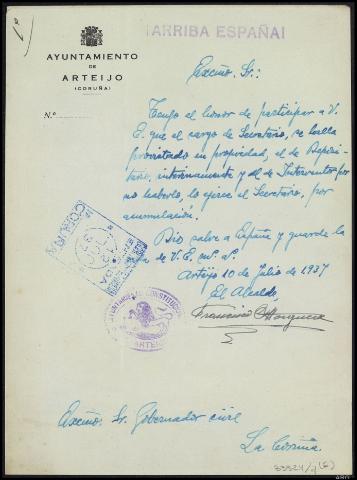 ¡ARRIBA ESPAÑA!
AYUNTAMIENTO
DE
ARTEIJO
(CORUÑA)
N.º
Excmo. Sr.:
Tengo el honor de participar a V.
E. que el cargo de Secretario, se halla
provistado en propiedad, el de Deposi-
tario, internamente y el de Interventor por
no haberlo, lo ejerce el Secretario, por
acumulación.
Dios salve a España y guarde la
vida de V. E. m.s a.s
Arteijo 10 de Julio de 1937
El Alcalde,
Francisco
AYUNTAMIENTO CONSTITUCIONAL
ARTEIJO
CORUÑA
Excmo. Sr. Gobernador civil
La Coruña.